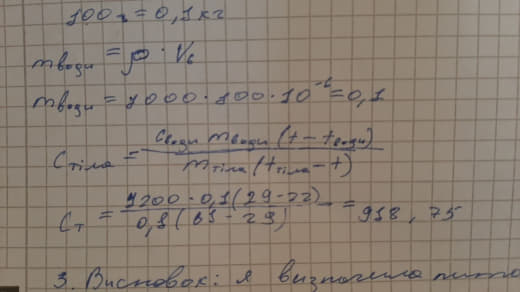 100 г = 0,1 кг
mводи = ρ · Vв
mводи = 1000 · 100 · 10⁻⁶ = 0,1
Cтіла = cводи mводи (t − tводи) / mтіла (tтіла − t)
Cт = 4200 · 0,1 (29 - 22) / 0,1 (61 - 29) = 918,75
3. Висновок: я визначила